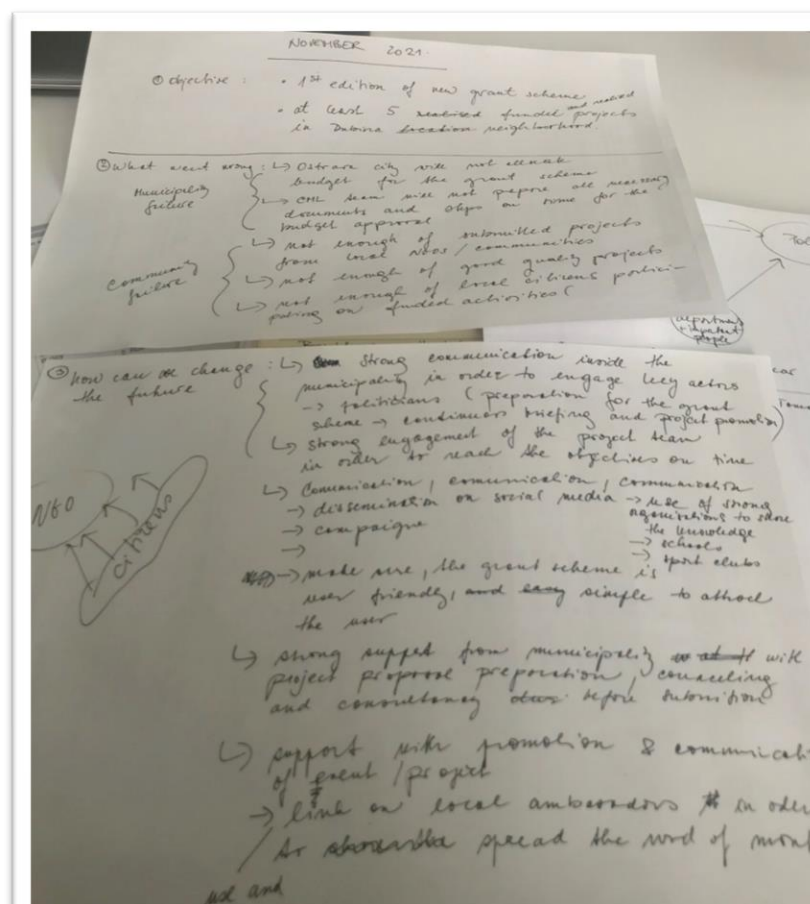 NOVEMBER 2021.
① objective : • 1st edition of new grant scheme
• at least 5 realised funded and realised projects
in Dubina location neighbourhood.
② What went wrong : ↳ Ostrava city will not allocate
budget for the grant scheme
Municipality
failure
↳ CML team will not prepare all necessary
documents and steps on time for the
budget approval
Community
failure
↳ not enough of submitted projects
from local NGOs / communities
↳ not enough of good quality projects
↳ not enough of local citizens partici-
pating on funded activities (
departments
+ important
people
③ how can we change : ↳ strong communication inside the
the future
municipality in order to engage key actors
→ politicians (preparation for the grant
sheme → continuers briefing and project promotion)
↳ strong engagement of the project team
in order to reach the objectives on time
↳ comunication, comunication, communication
→ dissemination on social media → use of strong
organisations to share
the knowledge
→ campaigne
→ schools
→
→ sport clubs
NGO
citizens
→ make sure, the grant scheme is
user friendly, and easy simple to attract
the user
↳ strong support from municipality with
project proposal preparation, counceling
and consultancy before submition
↳ support with promotion & communicati
of event / project
→ link on local ambassadors in oder
to spread the word of mout
use and